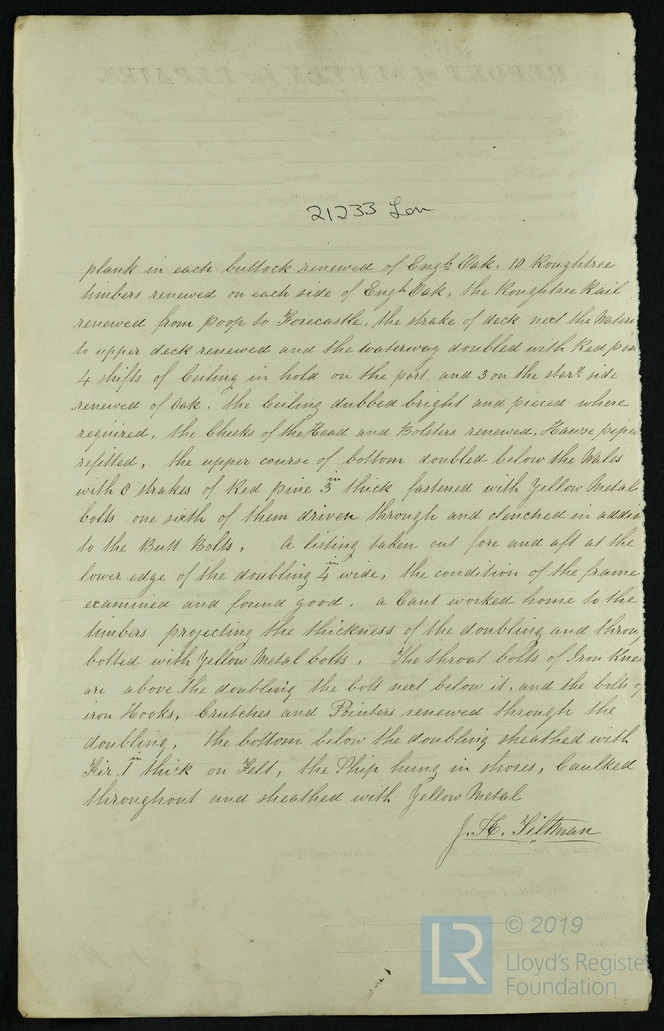 21233 Lon
plank in each buttock renewed of Engh. Oak. 10 Roughtree
timbers renewed on each side of Engh Oak, the Roughtree Rail
renewed from Poop to Forecastle, the strake of deck next the Water
to upper deck renewed and the waterway doubled with Red pin
4 shifts of Ceiling in hold on the port and 3 on the starbd side
renewed of Oak. the Ceiling dubbed bright and pieced where
required, the Cheeks of the Head and Bolsters renewed. Hawse pipe
refitted, the upper course of bottom doubled below the Wales
with 8 strakes of Red pine 3in thick fastened with Yellow Metal
bolts one sixth of them driven through and clenched in addit
to the Butt Bolts, A listing taken out fore and aft at the
lower edge of the doubling 4in wide, the condition of the frame
examined and found good. a Cant worked home to the
timbers projecting the thickness of the doubling and throu
bolted with Yellow Metal bolts. The throat bolts of Iron Knee
are above the doubling the bolt next below it, and the bolts o
iron Hooks, Crutches and Pointers renewed through the
doubling, the bottom below the doubling sheathed with
Fir 1in thick on Felt, the Ship hung in shores, Caulked
throughout and sheathed with Yellow Metal
J. H. Tiltman
LR
© 2019
Lloyd's Registe
Foundation